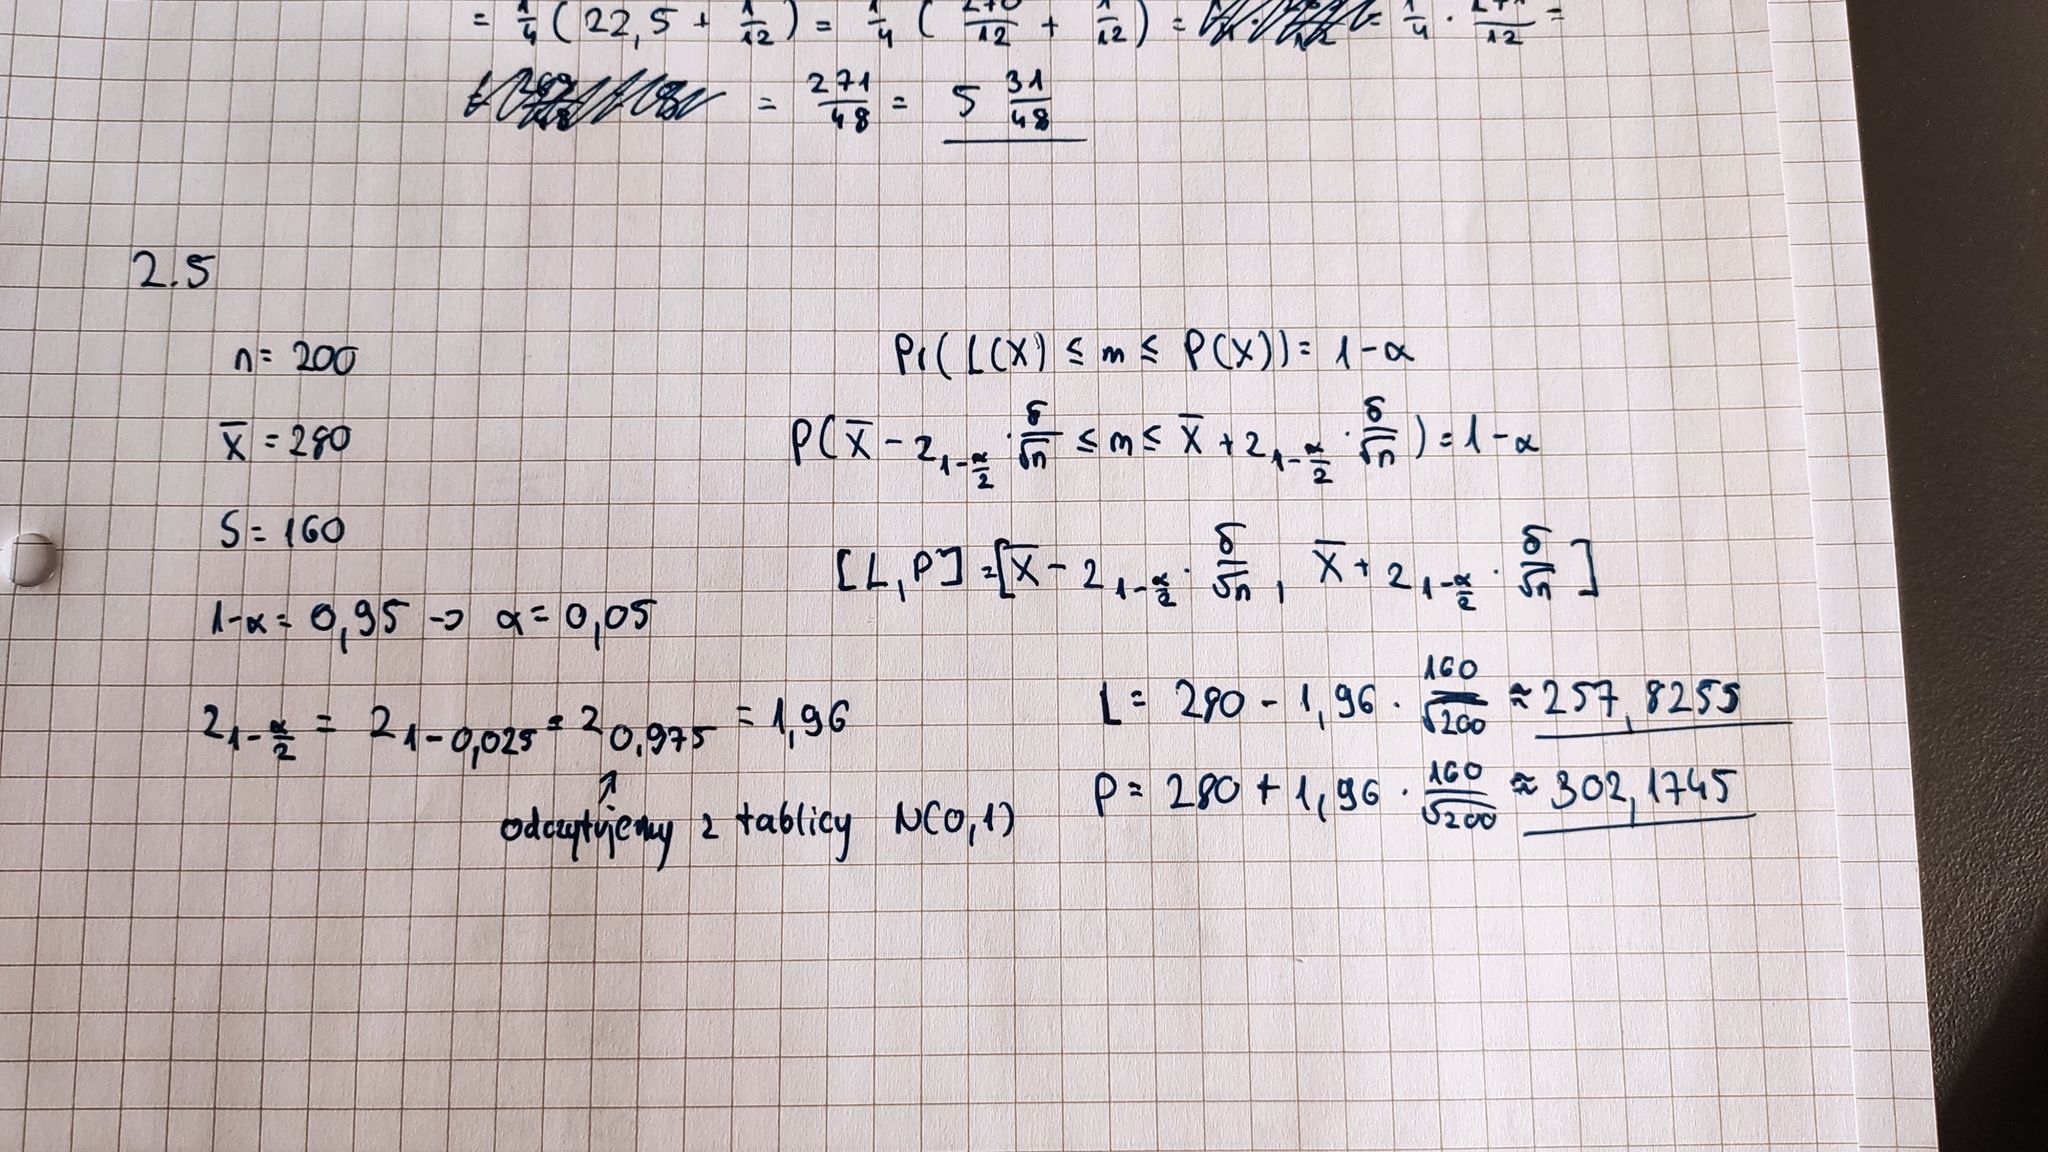 = 1/4 ( 22,5 + 1/12 ) = 1/4 ( 270/12 + 1/12 ) = = 1/4 · 271/12 =
= 271/48 = 5 31/48
2.5
n = 200
x̄ = 280
S = 160
1-α = 0,95 → α = 0,05
z_{1-α/2} = z_{1-0,025} = z_{0,975} = 1,96
↑
odczytujemy z tablicy N(0,1)
Pr( L(X) ≤ m ≤ P(X)) = 1-α
P( X̄ - z_{1-α/2} · δ/√n ≤ m ≤ X̄ + z_{1-α/2} · δ/√n ) = 1-α
[L, P] = [ X̄ - z_{1-α/2} · δ/√n , X̄ + z_{1-α/2} · δ/√n ]
L = 280 - 1,96 · 160/√200 ≈ 257,8255
P = 280 + 1,96 · 160/√200 ≈ 302,1745